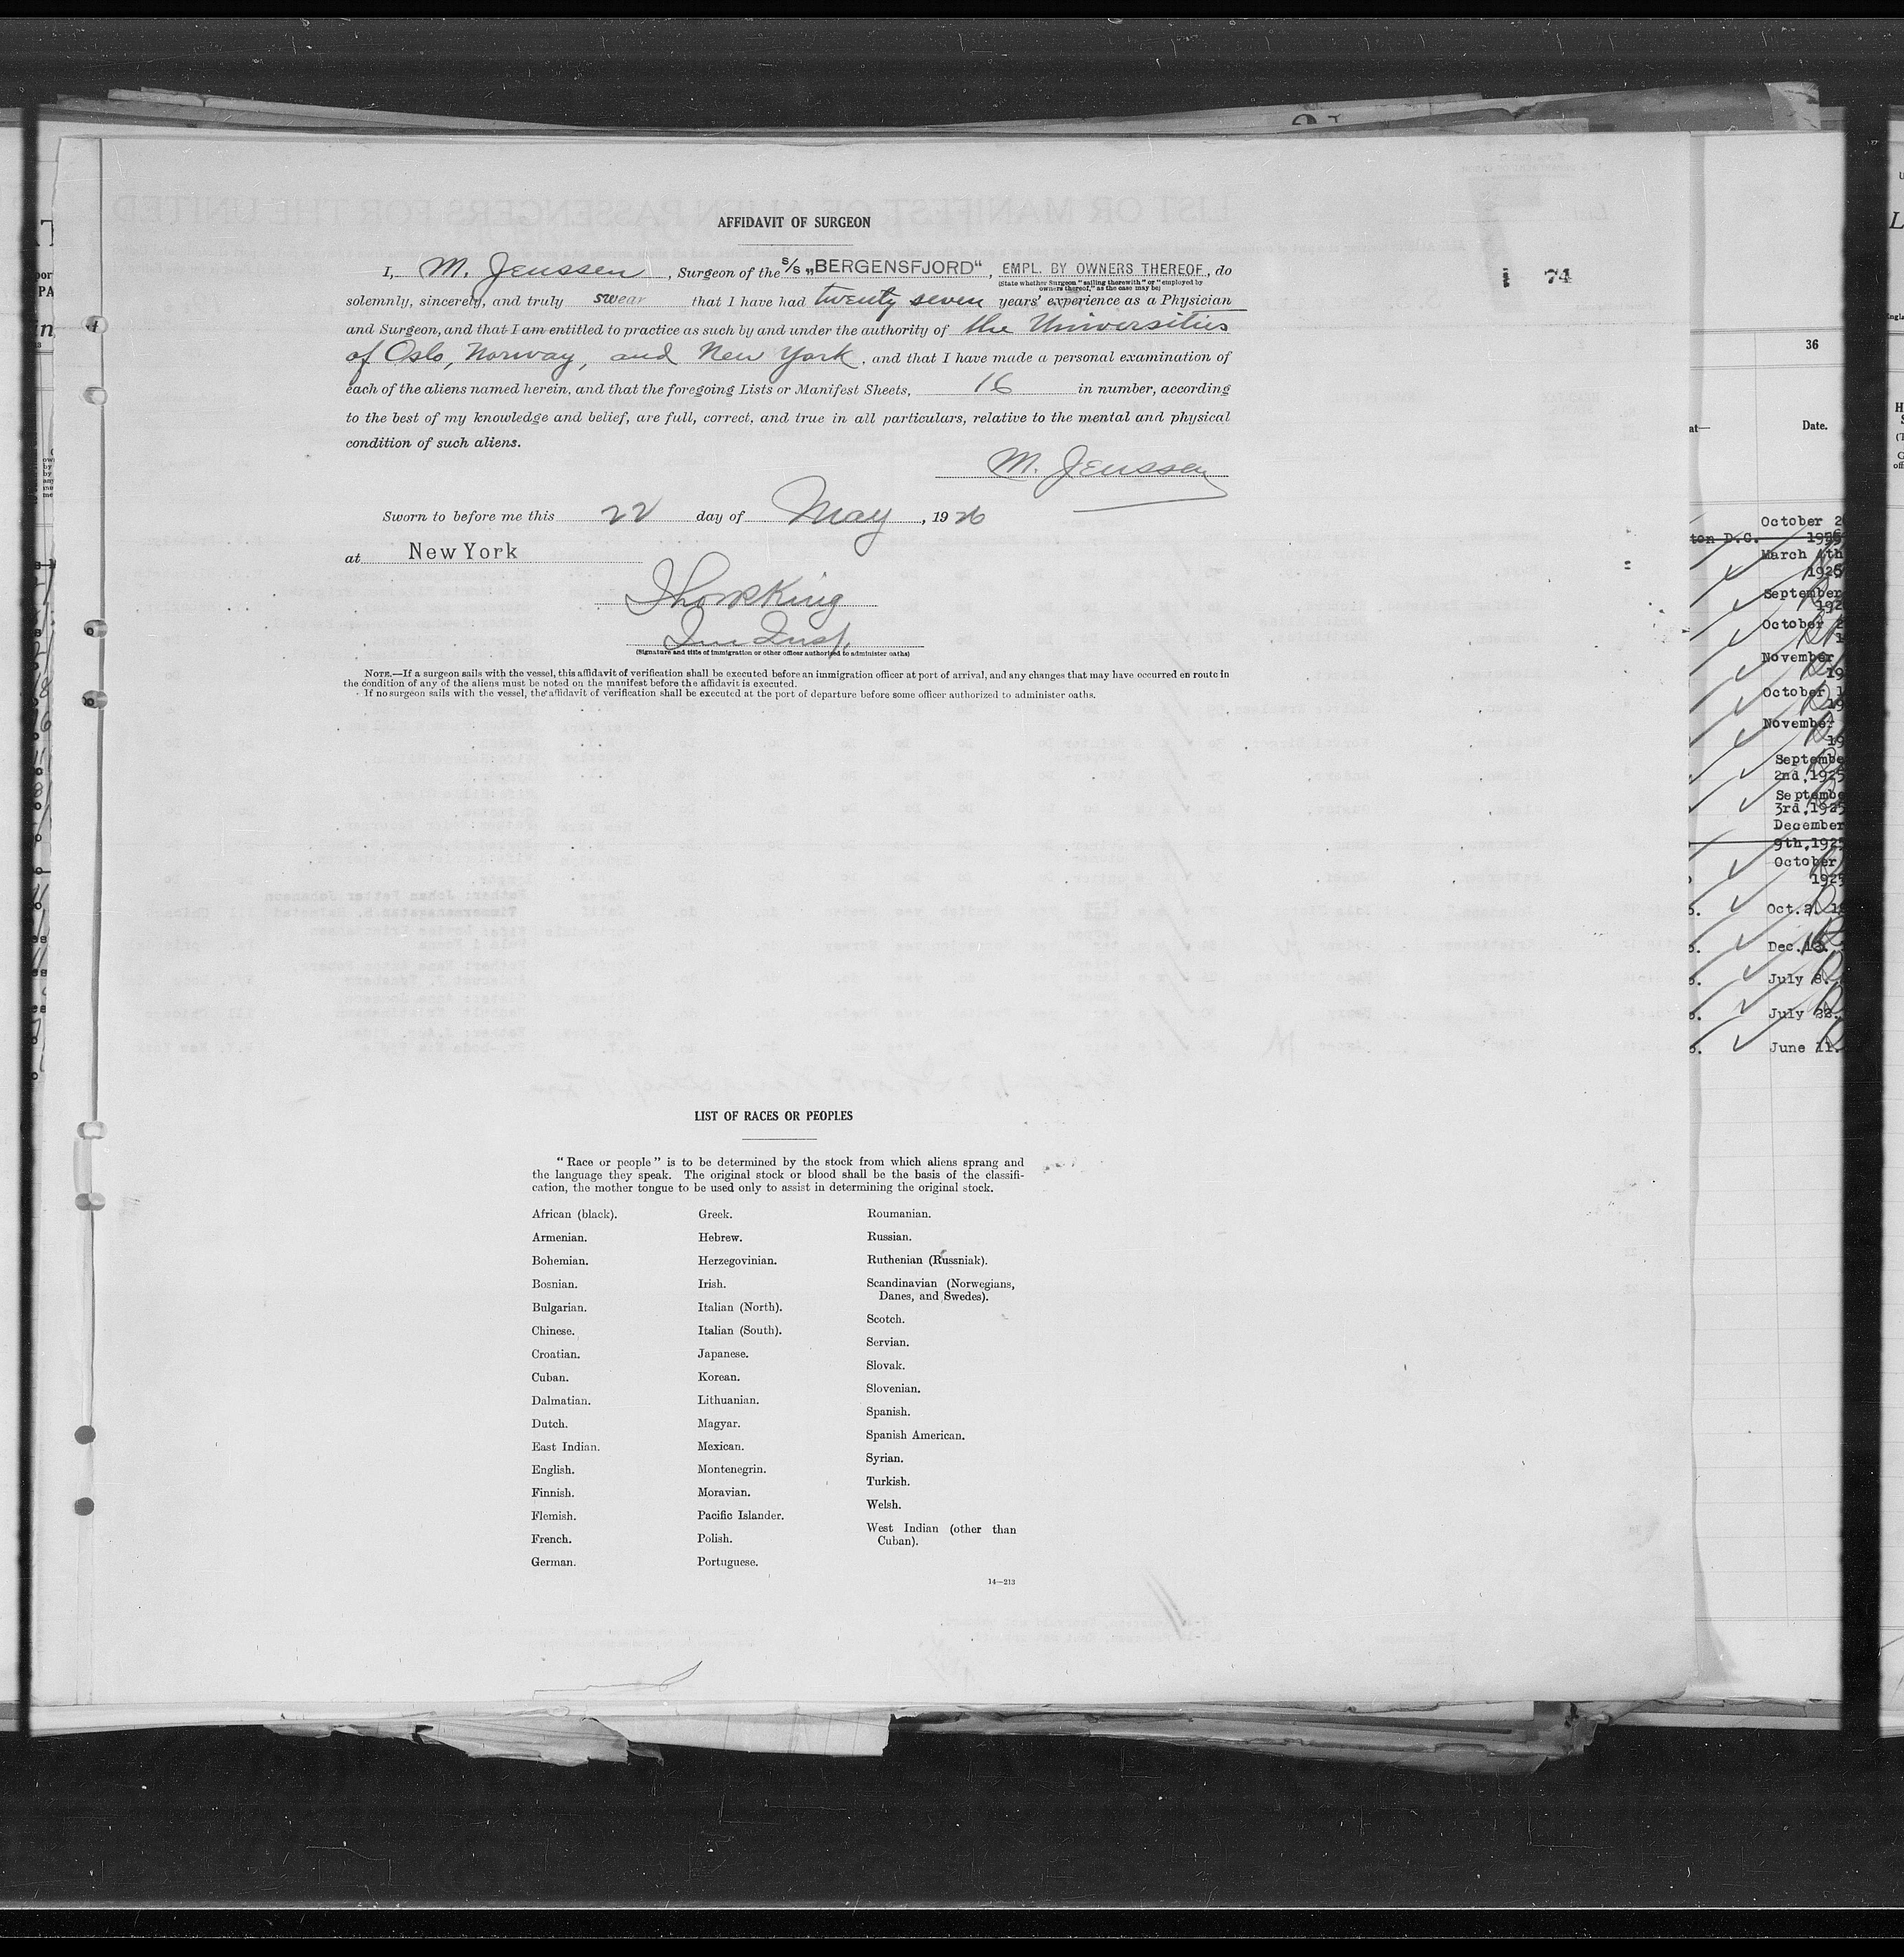 AFFIDAVIT OF SURGEON
I, M. Jenssen, Surgeon of the S/S „BERGENSFJORD“, EMPL. BY OWNERS THEREOF, do
(State whether Surgeon "sailing therewith" or "employed by
owners thereof," as the case may be)
solemnly, sincerely, and truly swear that I have had twenty seven years' experience as a Physician
and Surgeon, and that I am entitled to practice as such by and under the authority of the Universities
of Oslo, Norway, and New York, and that I have made a personal examination of
each of the aliens named herein, and that the foregoing Lists or Manifest Sheets, 16 in number, according
to the best of my knowledge and belief, are full, correct, and true in all particulars, relative to the mental and physical
condition of such aliens.
M. Jenssen
Sworn to before me this 22 day of May, 1926
at New York
King
Imm Insp.
(Signature and title of immigration or other officer authorized to administer oaths)
NOTE.—If a surgeon sails with the vessel, this affidavit of verification shall be executed before an immigration officer at port of arrival, and any changes that may have occurred en route in
the condition of any of the aliens must be noted on the manifest before the affidavit is executed.
If no surgeon sails with the vessel, the affidavit of verification shall be executed at the port of departure before some officer authorized to administer oaths.
74
LIST OF RACES OR PEOPLES
"Race or people" is to be determined by the stock from which aliens sprang and
the language they speak. The original stock or blood shall be the basis of the classifi-
cation, the mother tongue to be used only to assist in determining the original stock.
African (black).
Armenian.
Bohemian.
Bosnian.
Bulgarian.
Chinese.
Croatian.
Cuban.
Dalmatian.
Dutch.
East Indian.
English.
Finnish.
Flemish.
French.
German.
Greek.
Hebrew.
Herzegovinian.
Irish.
Italian (North).
Italian (South).
Japanese.
Korean.
Lithuanian.
Magyar.
Mexican.
Montenegrin.
Moravian.
Pacific Islander.
Polish.
Portuguese.
Roumanian.
Russian.
Ruthenian (Russniak).
Scandinavian (Norwegians,
Danes, and Swedes).
Scotch.
Servian.
Slovak.
Slovenian.
Spanish.
Spanish American.
Syrian.
Turkish.
Welsh.
West Indian (other than
Cuban).
14—213
36
Date.
October 2
ton D.C.
March 4th
1925
September
192
October 2
November
19
October 1
19
November
19
Septembe
2nd, 1925
Septembe
3rd, 1925
December
9th, 1925
October
1925
Oct. 2.
Dec. 13.
July 8.
July 22.
June 11.